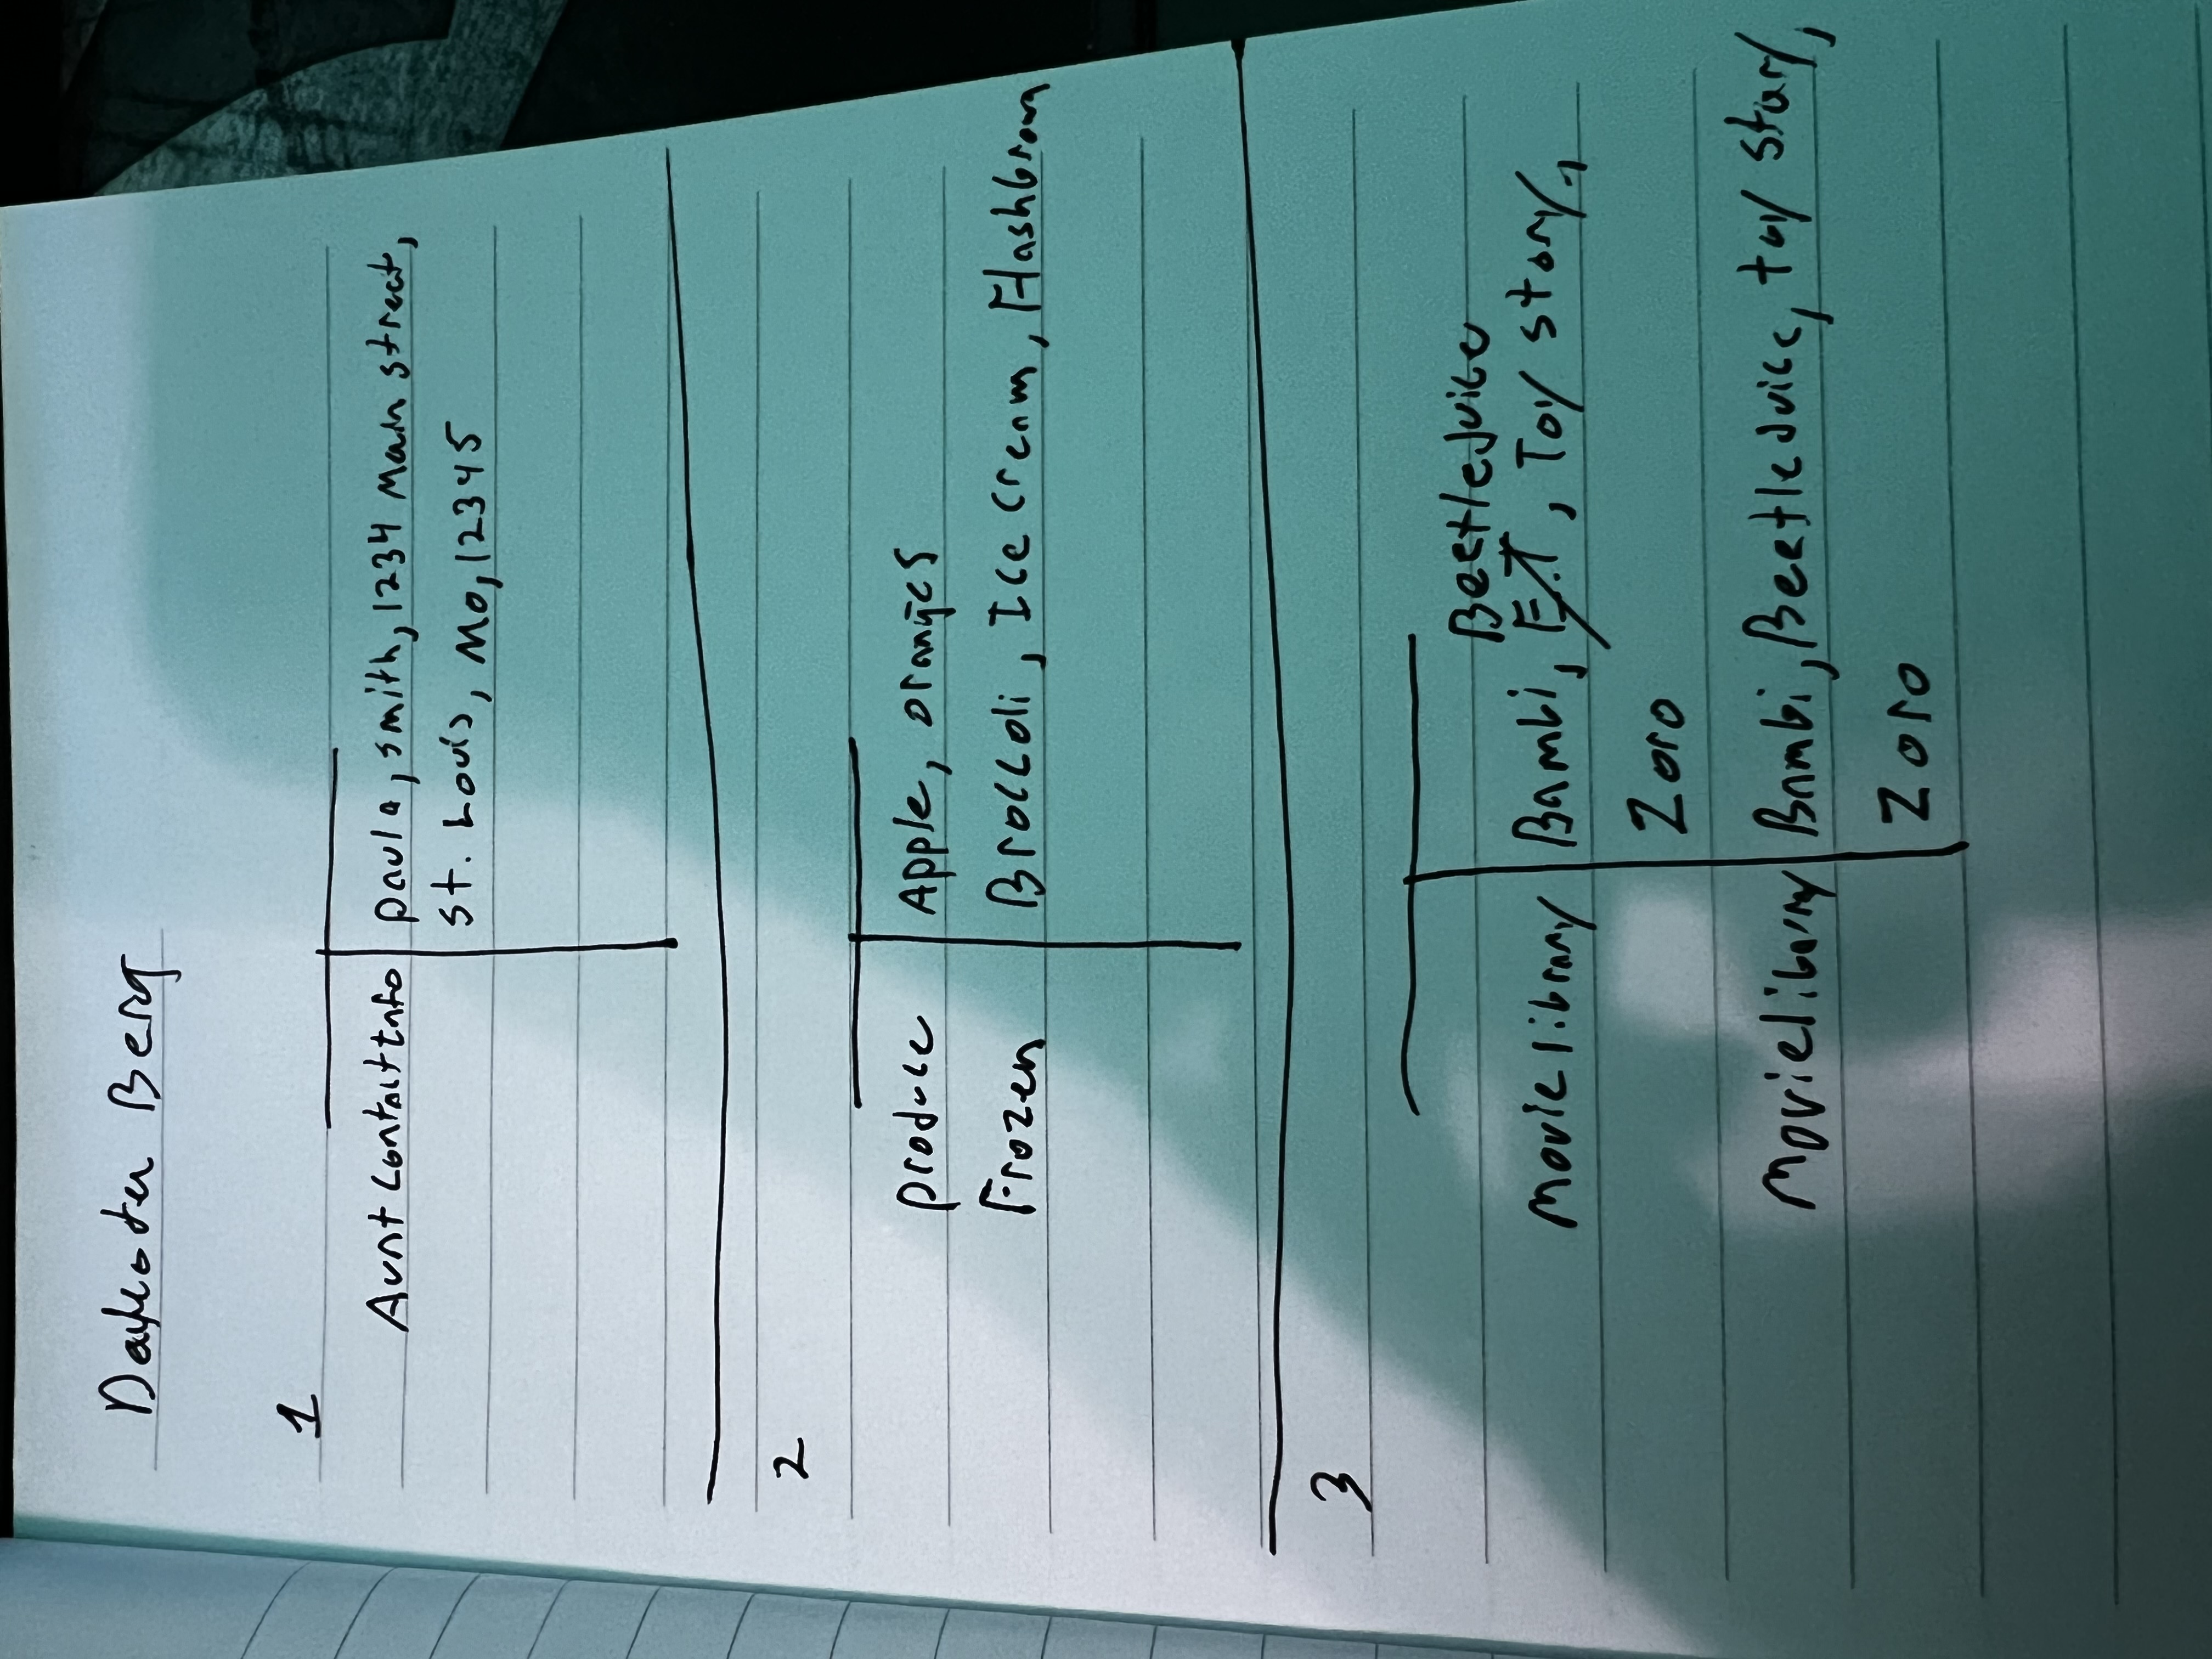 Berg
1
Aunt Contact Info Paula, Smith, 1234 Main street,
St. Louis, Mo, 12345
2
produce Apple, oranges
Frozen Broccoli, Ice Cream, Hashbrown
3
BeetleJuice
Movie library Bambi, E.T, Toy story,
Zoro
Movie library Bambi, BeetleJuice, toy story,
Zoro